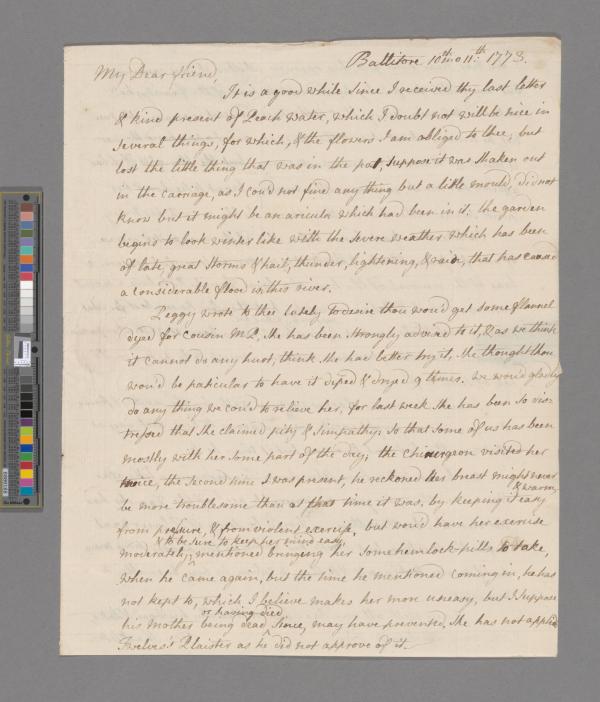 Ballitore 10th mo 11th: 1773.
My Dear friend,
It is a good while since I received thy last letter
& kind present of Peach water, which I doubt not will be nice in
several things, for which, & the flowers I am obliged to thee, but
lost the little thing that was in the pot, suppose it was shaken out
in the carriage, as I coud not find any thing but a little mould, did not
know but it might be an aricula which had been in it: the garden
begins to look winter like with the severe weather which has been
of late, great storms & hail, thunder, lightening, & rain, that has caused
a considerable flood in this river.
Peggy wrote to thee lately to desire thou would get some flannel
dyed for Cousin M P. she has been strongly advised to it, & as we think
it cannot do any hurt, think she had better try it, she thought thou
woud be paticular to have it diped & dryed 9 times. we woud gladly
do any thing we coud to relieve her, for last week she has been so dis:
tressed that she claimed pity & simpathy, so that some of us has been
mostly with her some part of the day; the Chirurgeon visited her
twice, the second time I was present, he reckoned her breast might never
& warm,
be more troublesome than at that time it was, by keeping it easy
from pressure, & from violent exercise, but woud have her exercise
& to be sure to keep her mind easy,
moderately; mentioned bringing her some hemlock-pills to take,
when he came again, but the time he mentioned coming in, he has
not kept to, which I believe makes her more uneasy, but I suppose
or having died
his mother being dead since, may have prevented. she has not applied
Twelves's Plaister as he did not approve of it.